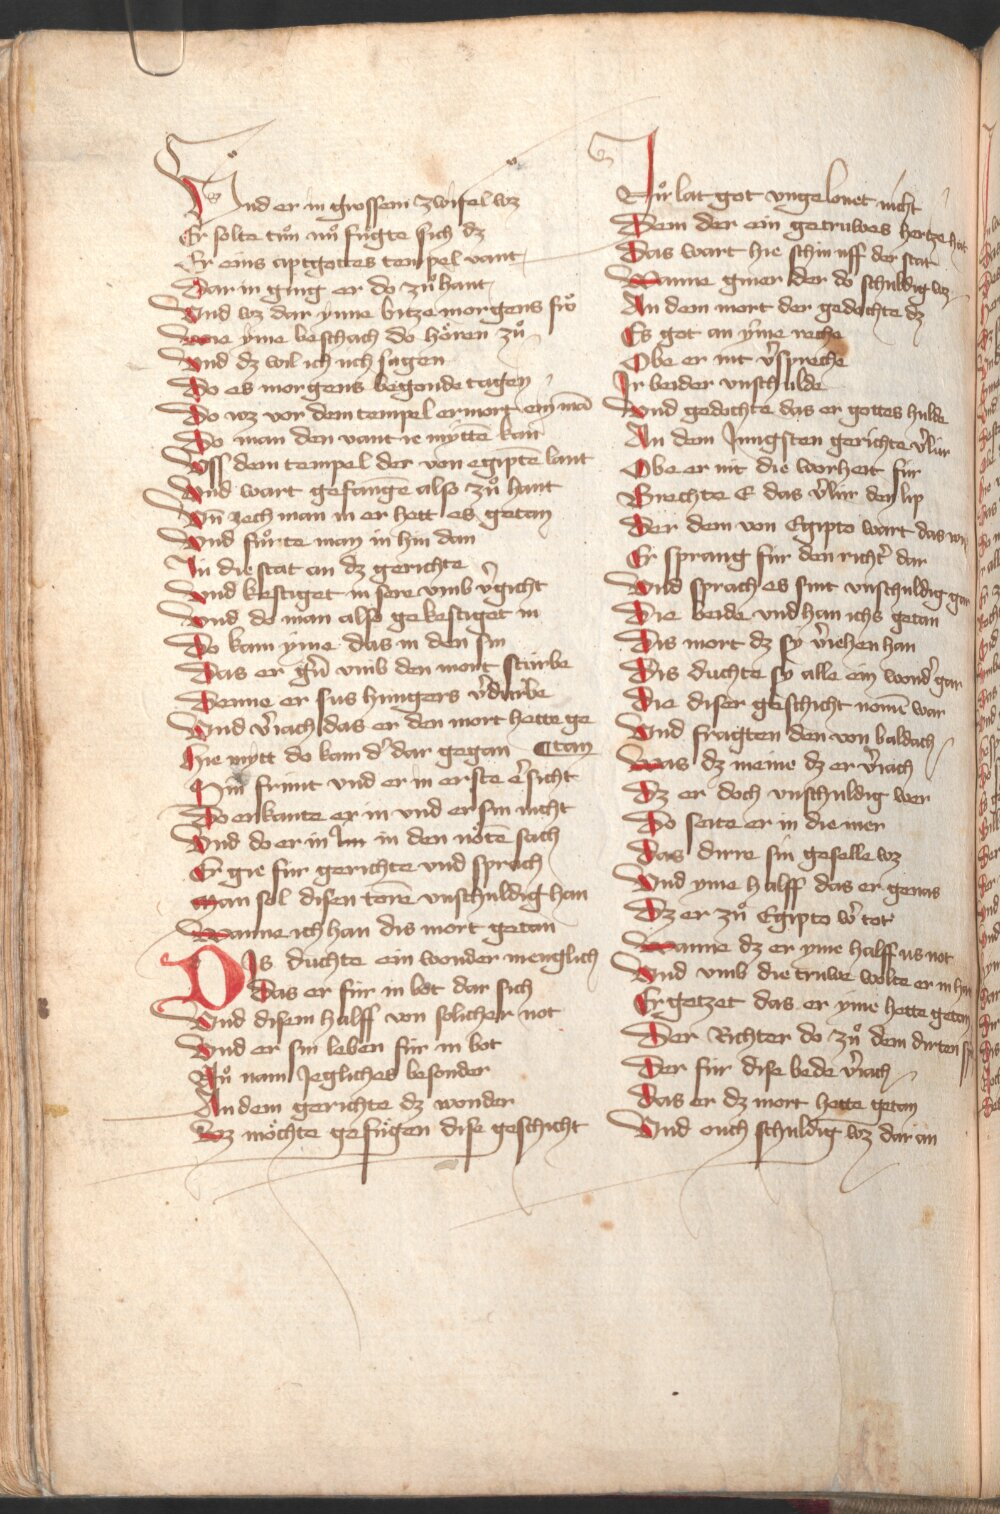 Und er in grossem zwifel wz
Er solte tuͦn nuͦ fuͤgte sich dz
Er eins aptgottes tempel vant
Dar in ging er do zuͦ hant
Und wz dar ynne bitze morgens fruͦ
Wie yme beschach do hoͤren zuͦ
Und dz wil ich uch sagen
Do es morgens begonde tagen
Do wz vor dem tempel ermort ein mā
Do man den vant ie mytte kan
Uss dem tempel der von egiptē lant
Und wart gefangē also zuͦ hant
Un̄ iech man in er hett es getan
Und fuͦrte man in hin dan
In die stat an dz gerichte
Und kestiget in sere umb v̓gicht
Und do man also gekestiget in
Do kam yme das in den sin
Das er gn̄ umb den mort sturbe
Denne er sus hungers v̓durbe
Und v̓iach das er den mort hette ge
Hie mytt do kam d̓ dar gegan ¶ tan
Sin frunt und er in erste e̓sicht
Do erkante er in und er sin nicht
Und do er in Im in den noͤtē sach
Er gie fur gerichte und sprach
Man sol disen torē unschuldig han
Wanne ich han dis mort getan
Dis duchte ein wonder menglich
Das er fur in bot dar sich
Und disem halff von solicher not
Und er sin leben fur in bot
Nuͦ nam Jegliches besonder
An dem gerichte dz wonder
Wz moͤchte gefuͤgen dise geschicht
Nuͦ lat got ungelonet nicht
Dem der ein getruwes hertze hat
Das wart hie schin uff der stat
Wanne giner der do schuldig wz
An dem mort der gedochte dz
Es got an yme reche
Obe er nit v̓spreche
Ir beider unschulde
Und gedochte das er gottes hulde
An dem Jungsten gerichte v̓lur
Obe er nit die worheit fur
Brechte E das v̓lur den lip
Der dem von Egipto wart das
Er sprang fur den richt̓ dar
Und sprach es sint unschuldig gar
Die beide und han ichs getan
Dis mort dz sy v̓iehen han
Dis duchte sy alle ein wond̓ gar
Die diser geschicht nomē war
Und fragten den von baldach
Was dz meine dz er v̓iach
Dz er doch unschuldig wer
Do seite er in die mer
Das dirre sin geselle wz
Und yme halff das er genas
Dz er zuͦ Egipto w̓ tot
Wanne dz er yme halff us not
Und umb die truwe wolte er in han
Ergetzet das er yme hette getan
Der Richter do zuͦ dem dirten
Der fur dise bede v̓iach
Das er dz mort hette getan
Und ouch schuldig wz dar an